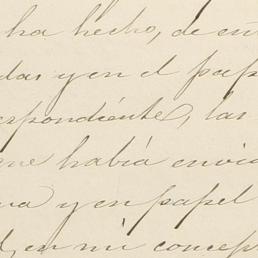 ha hecho, de
das y en el pap
espondiente, las
que había envia
va y en papel
en mi concep